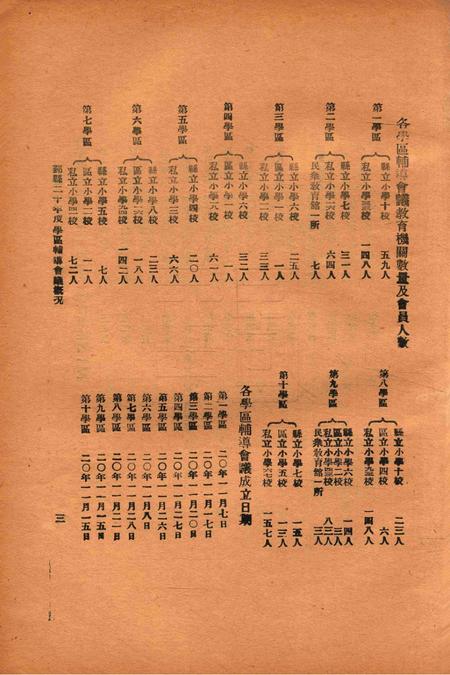 各學區輔導會議教育機關數量及會員人數
第一學區
縣立小學十校 五九人
私立小學 校 一四八人
第二學區
縣立小學七校 三一人
私立小學 校 六四人
民衆教育館一所 七人
第三學區
縣立小學六校 二五人
區立小學一校 一人
私立小學 校 三三人
第四學區
縣立小學六校 三二人
區立小學一校 一人
私立小學 校 六一人
第五學區
縣立小學四校 二〇人
私立小學 校 六六人
第六學區
縣立小學八校 二三人
區立小學 校 一八人
私立小學 校 一四二人
第七學區
縣立小學五校 七人
區立小學二校 一一人
私立小學 校 七二人
第八學區
縣立小學十校 二三人
區立小學四校 六人
私立小學 校 一四八人
第九學區
縣立小學六校 一四人
區立小學三校 三人
私立小學 校 八三人
民衆教育館一所 三人
第十學區
縣立小學七校 一五人
區立小學五校 一三人
私立小學 校 一五七人
各學區輔導會議成立日期
第一學區 二〇年一一月七日
第二學區 二〇年一一月一七日
第三學區 二〇年一一月二〇日
第四學區 二〇年一一月二七日
第五學區 二〇年一一月二六日
第六學區 二〇年一一月八日
第七學區 二〇年一一月二八日
第八學區 二〇年一一月二一日
第九學區 二〇年一一月一五日
第十學區 二〇年一一月一五日
鄞縣二十年度學區輔導會議概況
三